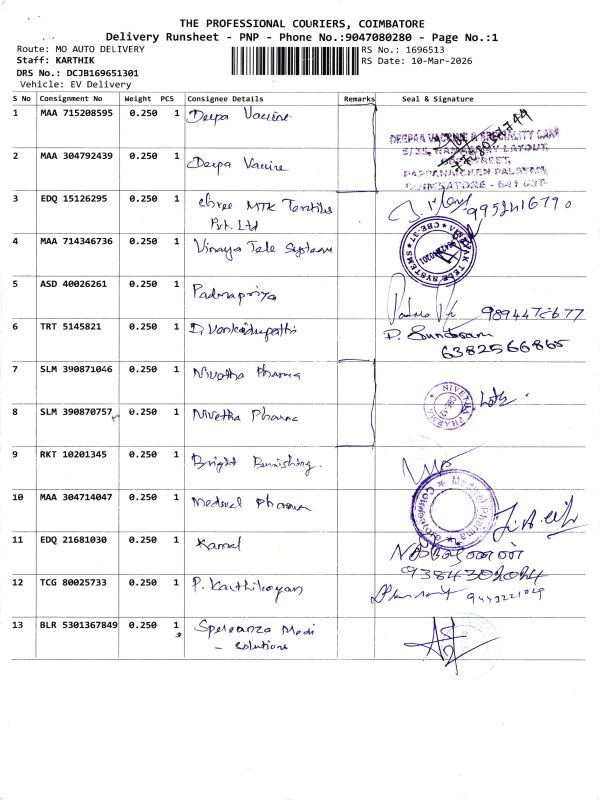 THE PROFESSIONAL COURIERS, COIMBATORE
Delivery Runsheet - PNP - Phone No.:9047080280 - Page No.:1
Route: MO AUTO DELIVERY
RS No.: 1696513
Staff: KARTHIK
RS Date: 10-Mar-2026
DRS No.: DCJB169651301
Vehicle: EV Delivery
S No Consignment No Weight PCS Consignee Details Remarks Seal & Signature
1 MAA 715208595 0.250 1 Deepa Vaccine
DEEPAA VACCINE & SPECIALITY CARE
LAYOUT,
STREET,
PAPPANAICKEN PALAYAM,
COIMBATORE - 641 037
2 MAA 304792439 0.250 1 Deepa Vaccine
3 EDQ 15126295 0.250 1 Shree MTK Textiles
Pvt. Ltd
9952416790
4 MAA 714346736 0.250 1 Vinaya Tele Systems
TELE SYSTEMS CBE-37
5 ASD 40026261 0.250 1 Padmapriya
6 TRT 5145821 0.250 1 D. Venkadupathi
D. Sundaram
6382566865
7 SLM 390871046 0.250 1 Nivetha Pharma
NIVETHA PHARMA CBE-12
8 SLM 390870757 0.250 1 Nivetha Pharma
9 RKT 10201345 0.250 1 Bright Burnishing.
10 MAA 304714047 0.250 1 Medwel Pharma
Medwel Pharma Coimbatore
11 EDQ 21681030 0.250 1 Kamal
9384302024
12 TCG 80025733 0.250 1 P. Karthikeyan
9443221029
13 BLR 5301367849 0.250 1 Speranza Medi
- solutions